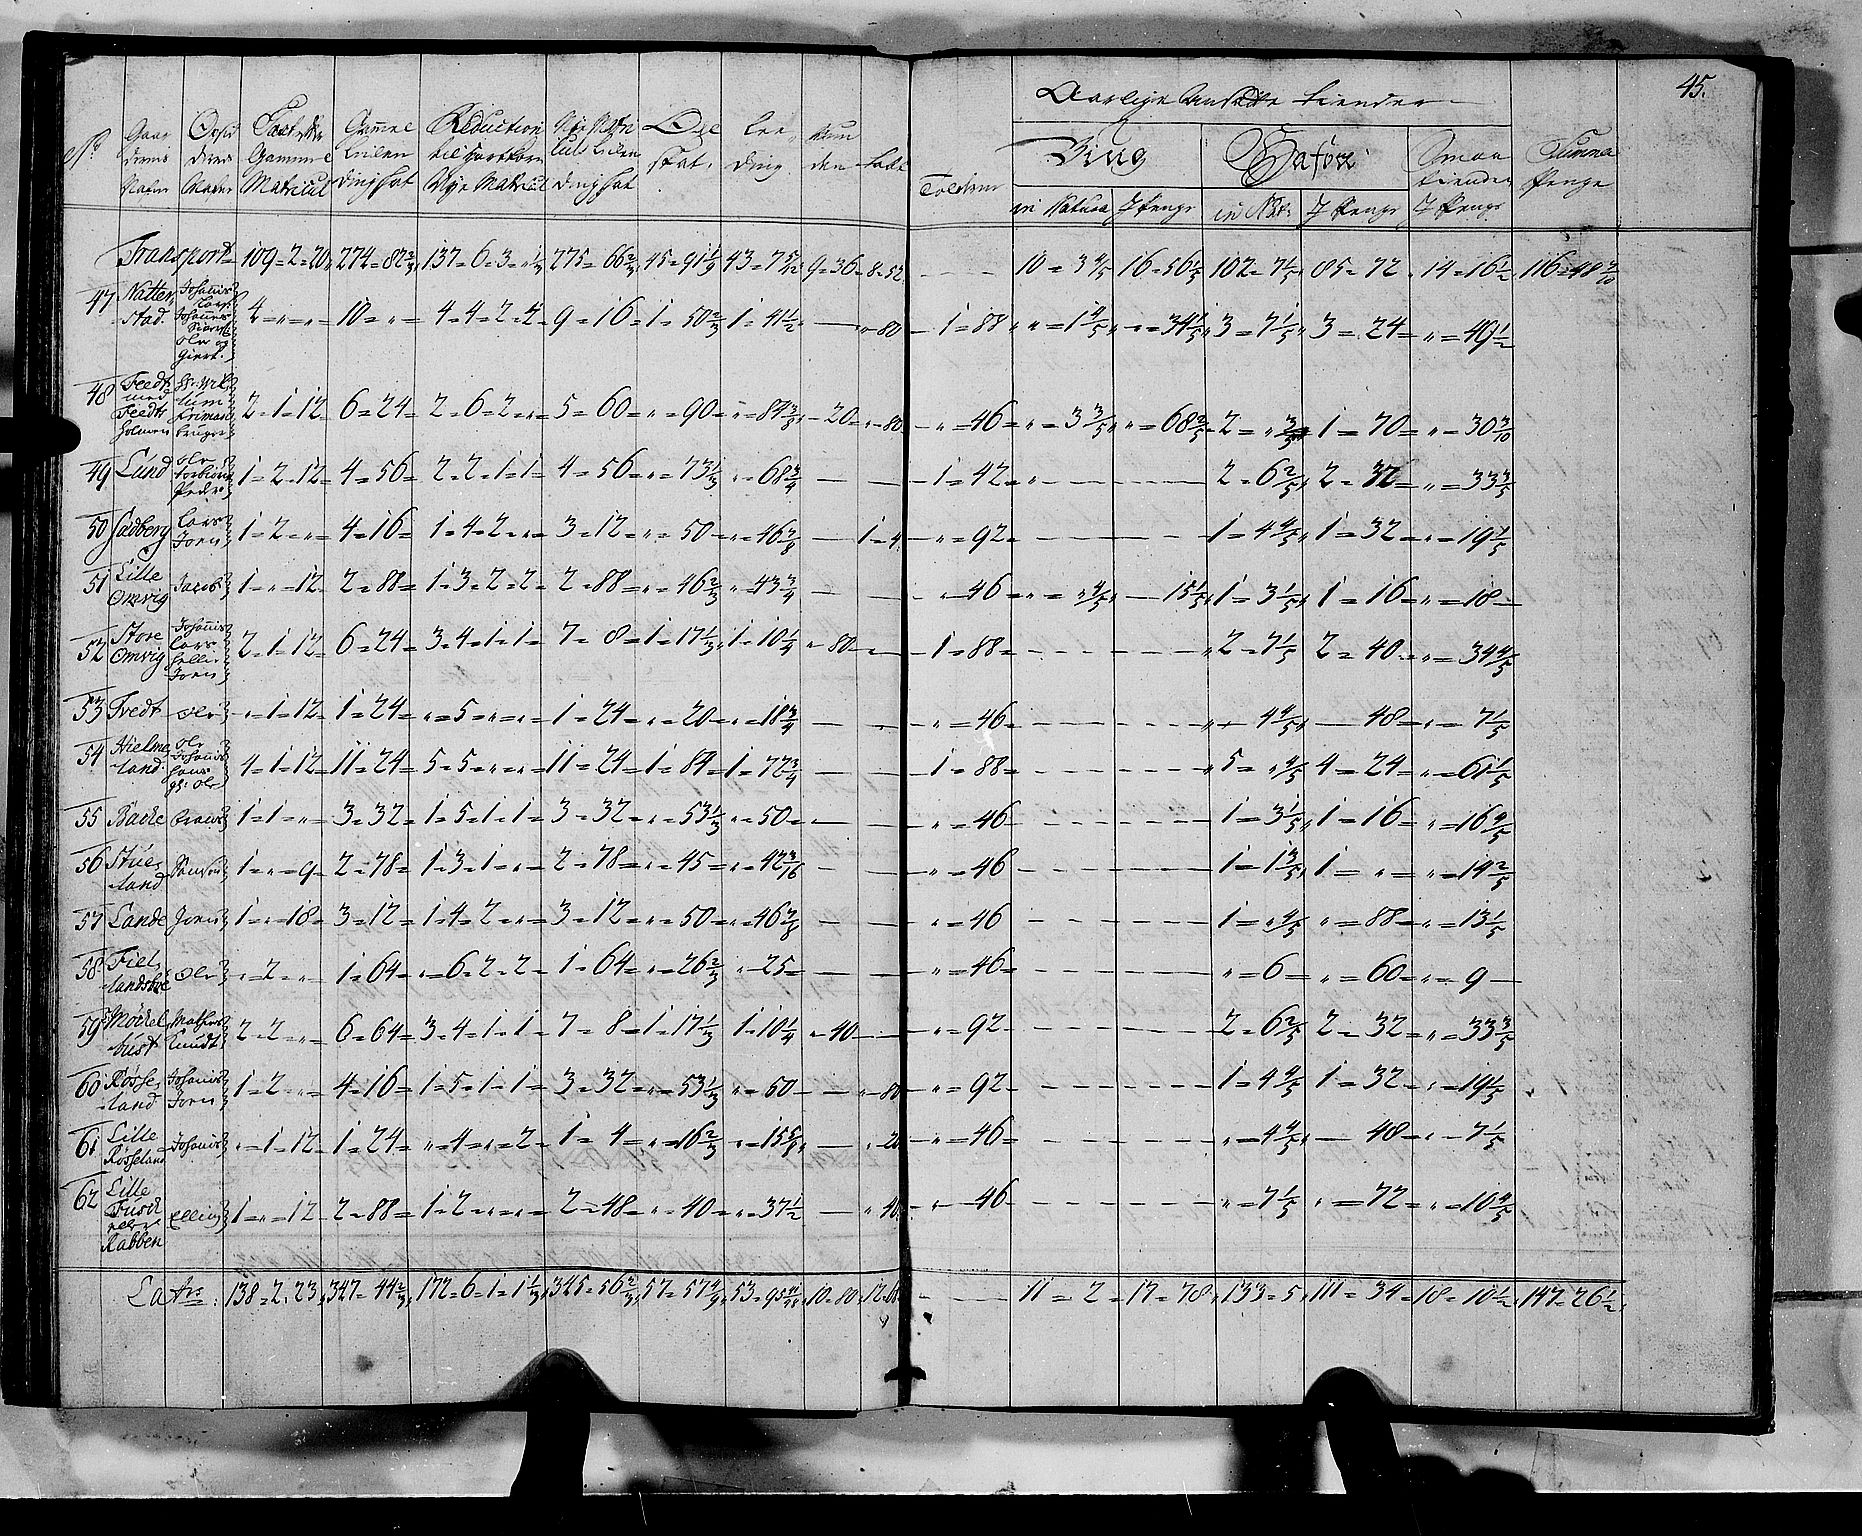 45.
No
Gaar
dernes
Nafne
Opsid
deres
Nafne
Gammel
Matricul
Gammel
Leilen
ding Skat
Reduction
til Hartkorn
Nÿe Matricul
Leilen
ding Skat
Skat.
Lee
ding.
Aarlige Ansadte Tiender
Biug
Hafvre
Smaa
tiender
J Penge
Summa
Penge
in Natura J Penge in Nat: J Penge
Transport 109=2=20 274=82 2/3 137=6=3=„ 1/3 275=66 2/3 45=91 1/9 43=7 9=36=8=52 10=3 4/5 16=56 1/5 102=7 1/5 85=72 14=16 1/2 116=48
47 Natte
stad. 4=„=„ 10=„= 4=4=2=2 9=16 1=50 2/3 1=41 1/2 — „80 1=88 „=1 4/5 „=34 1/5 3=7 1/5 3=24 „=49 1/2
Johannes
Lars
Johannes
Ole og
Giert.
48 Tvedt
med
Tvedte
holmen
bruger
2=1=12 6=24 2=6=2=„ 5=60 „=90 „=84 3/8 20 „80 „=46 „=3 3/5 „=68 2/5 2=„ 3/5 1=70 „=30 3/10
49 Lund Ole
Torbiørn
Peder 1=2=12 4=56 2=2=1=1 4=56 „=73 1/3 „=68 3/4 — — 1=42 „ 2=6 2/5 2=32 „=33 3/5
50 Ladberg Lars
Jørn 1=2=„ 4=16 1=4=2=„ 3=12 „=50 „=46 7/8 — 1=4 „=92 1=4 4/5 1=32 „=19 1/5
51 Lille
Omvig Jacob 1=„=12 2=88 1=3=2=2 2=88 „=46 2/3 „=43 3/4 — — „=46 „=„ 4/5 „—15 1/5 1=3 1/5 1=16 „=18
52 Store
Omvig Johannes
Lars
Helle
Jørn 2=1=12 6=24 3=4=1=1 7=8 1=17 1/3 1=10 1/4 „80 1=88 2=7 1/5 2=40 „=34 4/5
53 Tvedt Ole „=1=12 1=24 „=5=„=„ 1=24 „=20 „=18 3/4 — — „=46 „=4 4/5 —48 „=7 1/5
54 Hielme
land. Ole
Johannes
Hans
4=1=12 11=24 5=5=„=„ 11=24 1=84 1=77 3/4 — — 1=88 5=„ 4/5 4=24 „=61 1/5
55 Backe 1=1=„ 3=32 1=5=1=1 3=32 „=53 1/3 „=50 — — „=46 1=3 1/5 1=16 „=16 4/5
56 Stue
land Samson 1=„=9 2=78 1=3=1=„ 2=78 „=45 „=42 3/16 — — „=46 1=1 3/5 1=„ „=14 2/5
57 Lande Jørn 1=„=18 3=12 1=4=2=„ 3=12 „=50 „=46 7/8 — — „=46 1=„ 4/5 „=88 „=13 1/5
58 Fiel
landsboe Ole „=2=„ 1=64 „=6=2=2 1=64 „=26 2/3 „=25 — — „=46 „=6 „=60 „=9
59 Møckel
bust Mathias
Knudt 2=2=„ 6=64 3=4=1=1 7=8 1=17 1/3 1=10 1/4 „=40 — „=92 2=6 2/5 2=32 „=33 3/5
60 Røsse
land Johannes
Jørn 1=2=„ 4=16 1=5=1=1 3=32 „=53 1/3 „=50 — „80 „=92 1=4 4/5 1=32 „=19 1/5
61 Lille
Røsseland Johannes „=1=12 1=24 „=4=„=2 1=4 „=16 2/3 „=15 5/8 — „20 „=46 „=4 4/5 —48 „=7 1/5
62 Lille
eller
Rabben Elling 1=„=12 2=88 1=2=„=„ 2=48 „=40 „=37 1/2 — „40 „=46 „=7 1/5 „=72 „=10 4/5
138=2=23 347=44 2/3 172=6=1=1 1/3 345=56 2/3 57=57 4/9 53=95 10=80 11=2 17=78 133=5 111=34 18=10 1/2 147=26 1/2